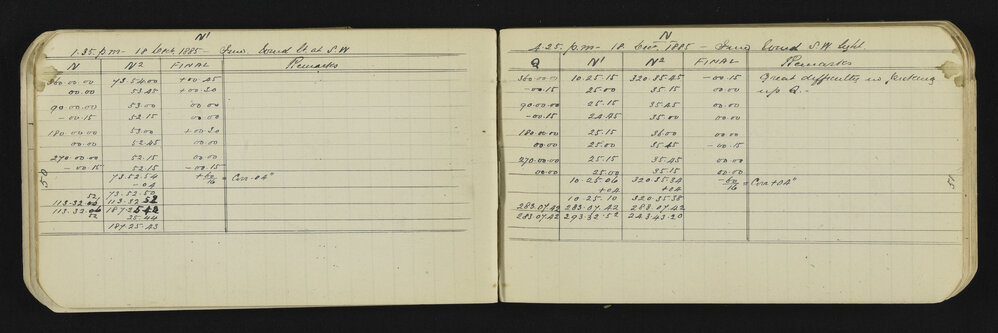 N'
1.35. p.m - 18 Sept 1885 - Fine, Wind Lt. at S.W
N N2 FINAL Remarks
360.00.00 73.54.00 +00.45
00.00 53.45 +00.30
90.00.00 53.00 00.00
-00.15 52.15 00.00
180.00.00 53.00 +00.30
00.00 52.45 00.00
270.00.00 52.15 00.00
-00.15 52.15 -00.15
73.52.54 = Corr -04"
-04
73.52.50
113.32 113.32 52
113.32 187.25
52 25.44
187.25.43
50
N
4.25. p.m - 18 1885 - Fine Wind S.W light
Q N' N2 FINAL Remarks
360.00.00 10.25.15 320.35.45 -00.15 Great difficulty in picking
-00.15 25.00 35.15 00.00 up Q.-
90.00.00 25.15 35.45 00.00
-00.15 24.45 35.00 00.00
180.00.00 25.15 36.00 00.00
00.00 25.00 35.45 -00.15
270.00.00 25.15 35.45 00.00
00.00 25.00 35.15 00.00
10.25.06 320.35.34 = Corr +04"
+04 +04
10.25.10 320.35.38
283.07.42 283.07.42 283.07.42
283.07.42 293.32.52 243.43.20
51